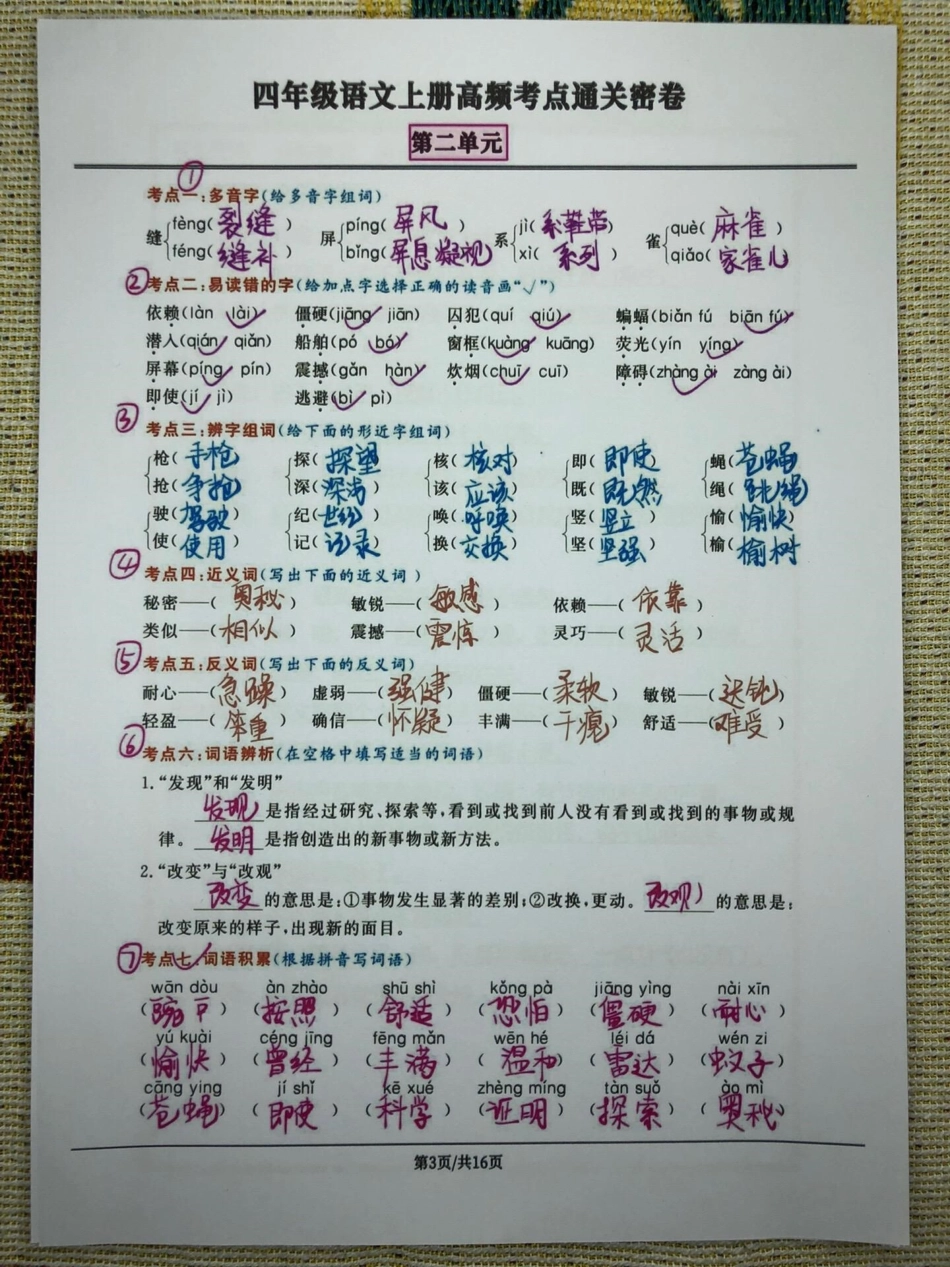 四年级语文上册高频考点通关密卷
第二单元
① 考点一:多音字(给多音字组词)
缝 fèng(裂缝) 屏 píng(屏风) 系 jì(系鞋带) 雀 què(麻雀)
féng(缝补) bǐng(屏息凝视) xì(系列) qiǎo(家雀儿)
② 考点二:易读错的字(给加点字选择正确的读音画“√”)
依赖(làn lài√) 僵硬(jiāng√ jiān) 囚犯(quí qiú√) 蝙蝠(biǎn fú biān fú√)
潜人(qián√ qiǎn) 船舶(pó bó√) 窗框(kuàng√ kuāng) 荧光(yín yíng√)
屏幕(píng√ pín) 震撼(gǎn hàn√) 炊烟(chuī√ cuī) 障碍(zhàng ài√ zàng ài)
即使(jí√ jì) 逃避(bì√ pì)
③ 考点三:辨字组词(给下面的形近字组词)
枪(手枪) 探(探望) 核(核对) 即(即使) 蝇(苍蝇)
抢(争抢) 深(深浅) 该(应该) 既(既然) 绳(跳绳)
驶(驾驶) 纪(世纪) 唤(呼唤) 竖(竖立) 愉(愉快)
使(使用) 记(记录) 换(交换) 坚(坚强) 榆(榆树)
④ 考点四:近义词(写出下面的近义词)
秘密——(奥秘) 敏锐——(敏感) 依赖——(依靠)
类似——(相似) 震撼——(震惊) 灵巧——(灵活)
⑤ 考点五:反义词(写出下面的反义词)
耐心——(急躁) 虚弱——(强健) 僵硬——(柔软) 敏锐——(迟钝)
轻盈——(笨重) 确信——(怀疑) 丰满——(干瘪) 舒适——(难受)
⑥ 考点六:词语辨析(在空格中填写适当的词语)
1.“发现”和“发明”
发现是指经过研究、探索等,看到或找到前人没有看到或找到的事物或规
律。发明是指创造出的新事物或新方法。
2.“改变”与“改观”
改变的意思是:①事物发生显著的差别;②改换,更动。改观的意思是:
改变原来的样子,出现新的面目。
⑦ 考点七:词语积累(根据拼音写词语)
wān dòu àn zhào shū shì kǒng pà jiāng yìng nài xīn
(豌豆) (按照) (舒适) (恐怕) (僵硬) (耐心)
yú kuài céng jīng fēng mǎn wēn hé léi dá wén zi
(愉快) (曾经) (丰满) (温和) (雷达) (蚊子)
cāng ying jí shǐ kē xué zhèng míng tàn suǒ ào mì
(苍蝇) (即使) (科学) (证明) (探索) (奥秘)
第3页/共16页